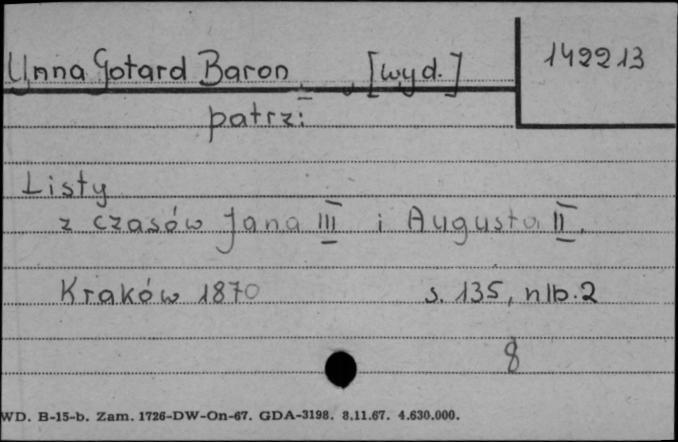 Unna Gotard Baron , [wyd.]
142213
patrz:
Listy
z czasów Jana III i Augusta II.
Kraków 1870 s. 135, nlb. 2
8
WD. B-15-b. Zam. 1726-DW-On-67. GDA-3198. 8.11.67. 4.630.000.